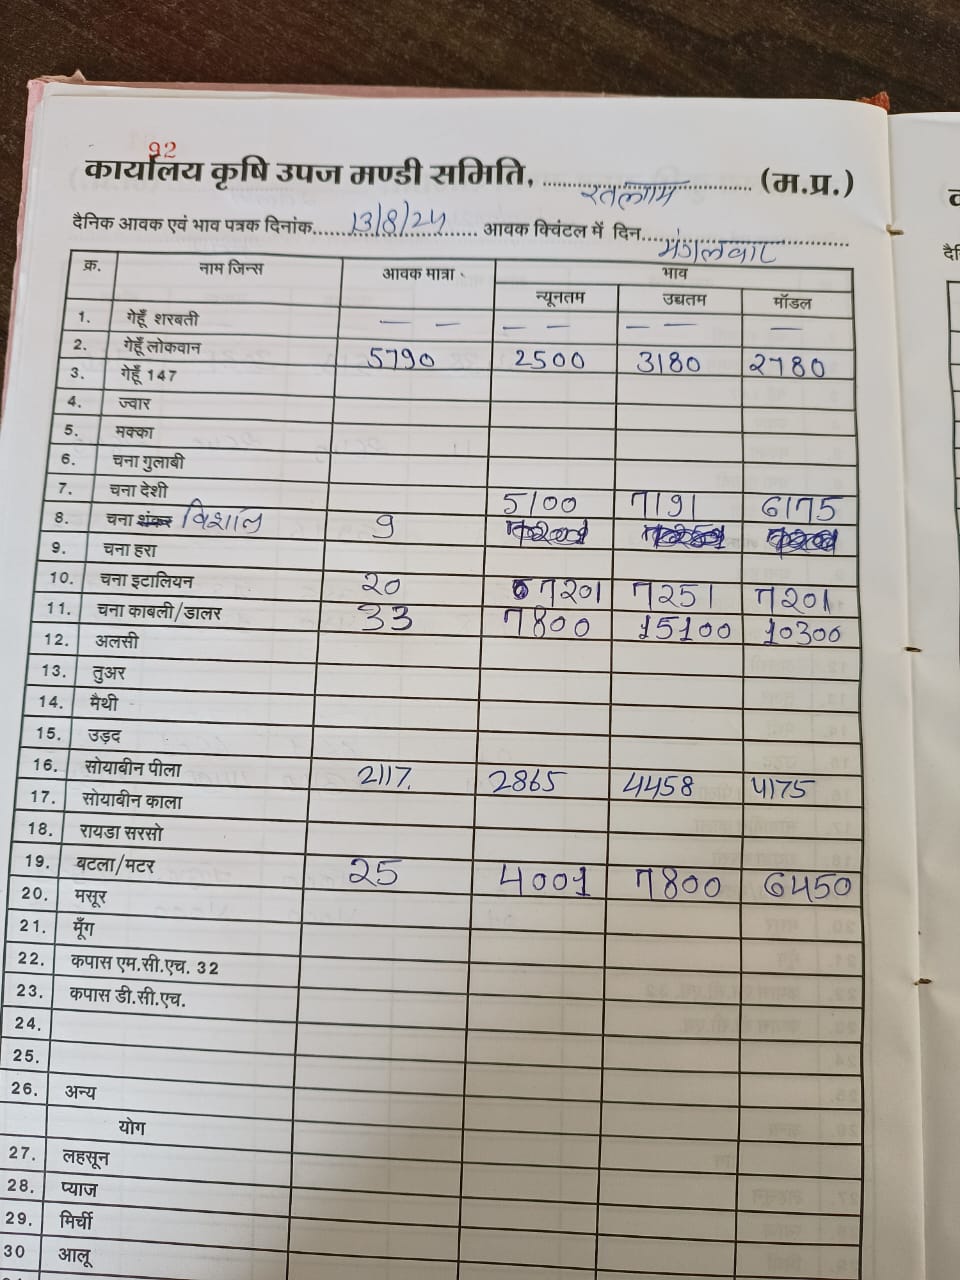 92
कार्यालय कृषि उपज मण्डी समिति, रतलाम (म.प्र.)
दैनिक आवक एवं भाव पत्रक दिनांक 13/8/24 आवक क्विंटल में दिन मंगलवार
क्र. नाम जिन्स आवक मात्रा भाव
न्यूनतम उच्चतम मॉडल
1. गेहूँ शरबती — — — — — — —
2. गेहूँ लोकवान 5790 2500 3180 2780
3. गेहूँ 147
4. ज्वार
5. मक्का
6. चना गुलाबी
7. चना देशी 5100 7191 6175
8. चना शंकर विशाल 9
9. चना हरा
10. चना इटालियन 20 7201 7251 7201
11. चना काबली/डालर 33 7800 15100 10300
12. अलसी
13. तुअर
14. मैथी
15. उड़द
16. सोयाबीन पीला 2117. 2865 4458 4175
17. सोयाबीन काला
18. रायडा सरसो
19. बटला/मटर 25 4001 7800 6450
20. मसूर
21. मूँग
22. कपास एम.सी.एच. 32
23. कपास डी.सी.एच.
24.
25.
26. अन्य
योग
27. लहसून
28. प्याज
29. मिर्ची
30 आलू